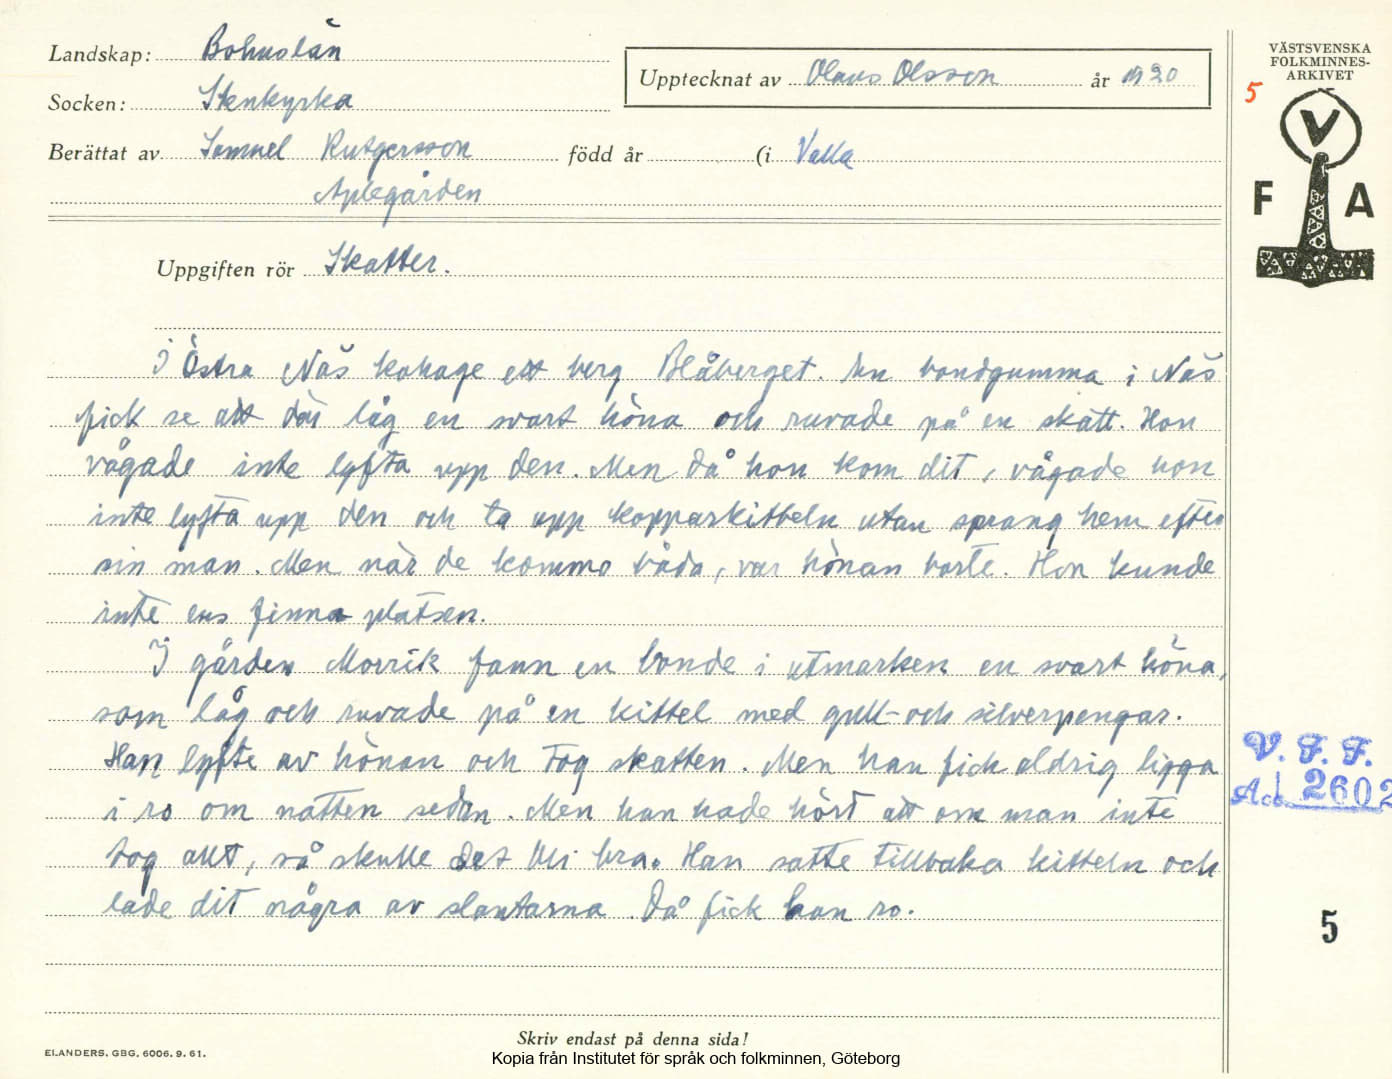 Landskap: Bohuslän
Socken: Stenkyrka
Upptecknat av Olaus Olsson år 1920
Berättat av Samuel Rutgersson född år (i Valla
Aplegården
VÄSTSVENSKA
FOLKMINNES-
ARKIVET
5
V
F A
Uppgiften rör Skatter.
I Östra Näs kohage ett berg Blåberget. En bondgumma i Näs
fick se att där låg en svart höna och ruvade på en skatt. Hon
vågade inte lyfta upp den. Men då hon kom dit, vågade hon
inte lyfta upp den och ta upp kopparkitteln utan sprang hem efter
sin man. Men när de kommo båda, var hönan borte. Hon kunde
inte ens finna platsen.
I gården Morrik fann en bonde i utmarken en svart höna,
som låg och ruvade på en kittel med gull- och silverpengar.
Han lyfte av hönan och tog skatten. Men han fick aldrig ligga
i ro om natten sedan. Men han hade hört att om man inte
tog allt, så skulle det bli bra. Han satte tillbaka kitteln och
lade dit några av slantarna. Då fick han ro.
V. F. F.
Acc. 2602
5
Skriv endast på denna sida!
ELANDERS, GBG, 6006. 9. 61.
Kopia från Institutet för språk och folkminnen, Göteborg